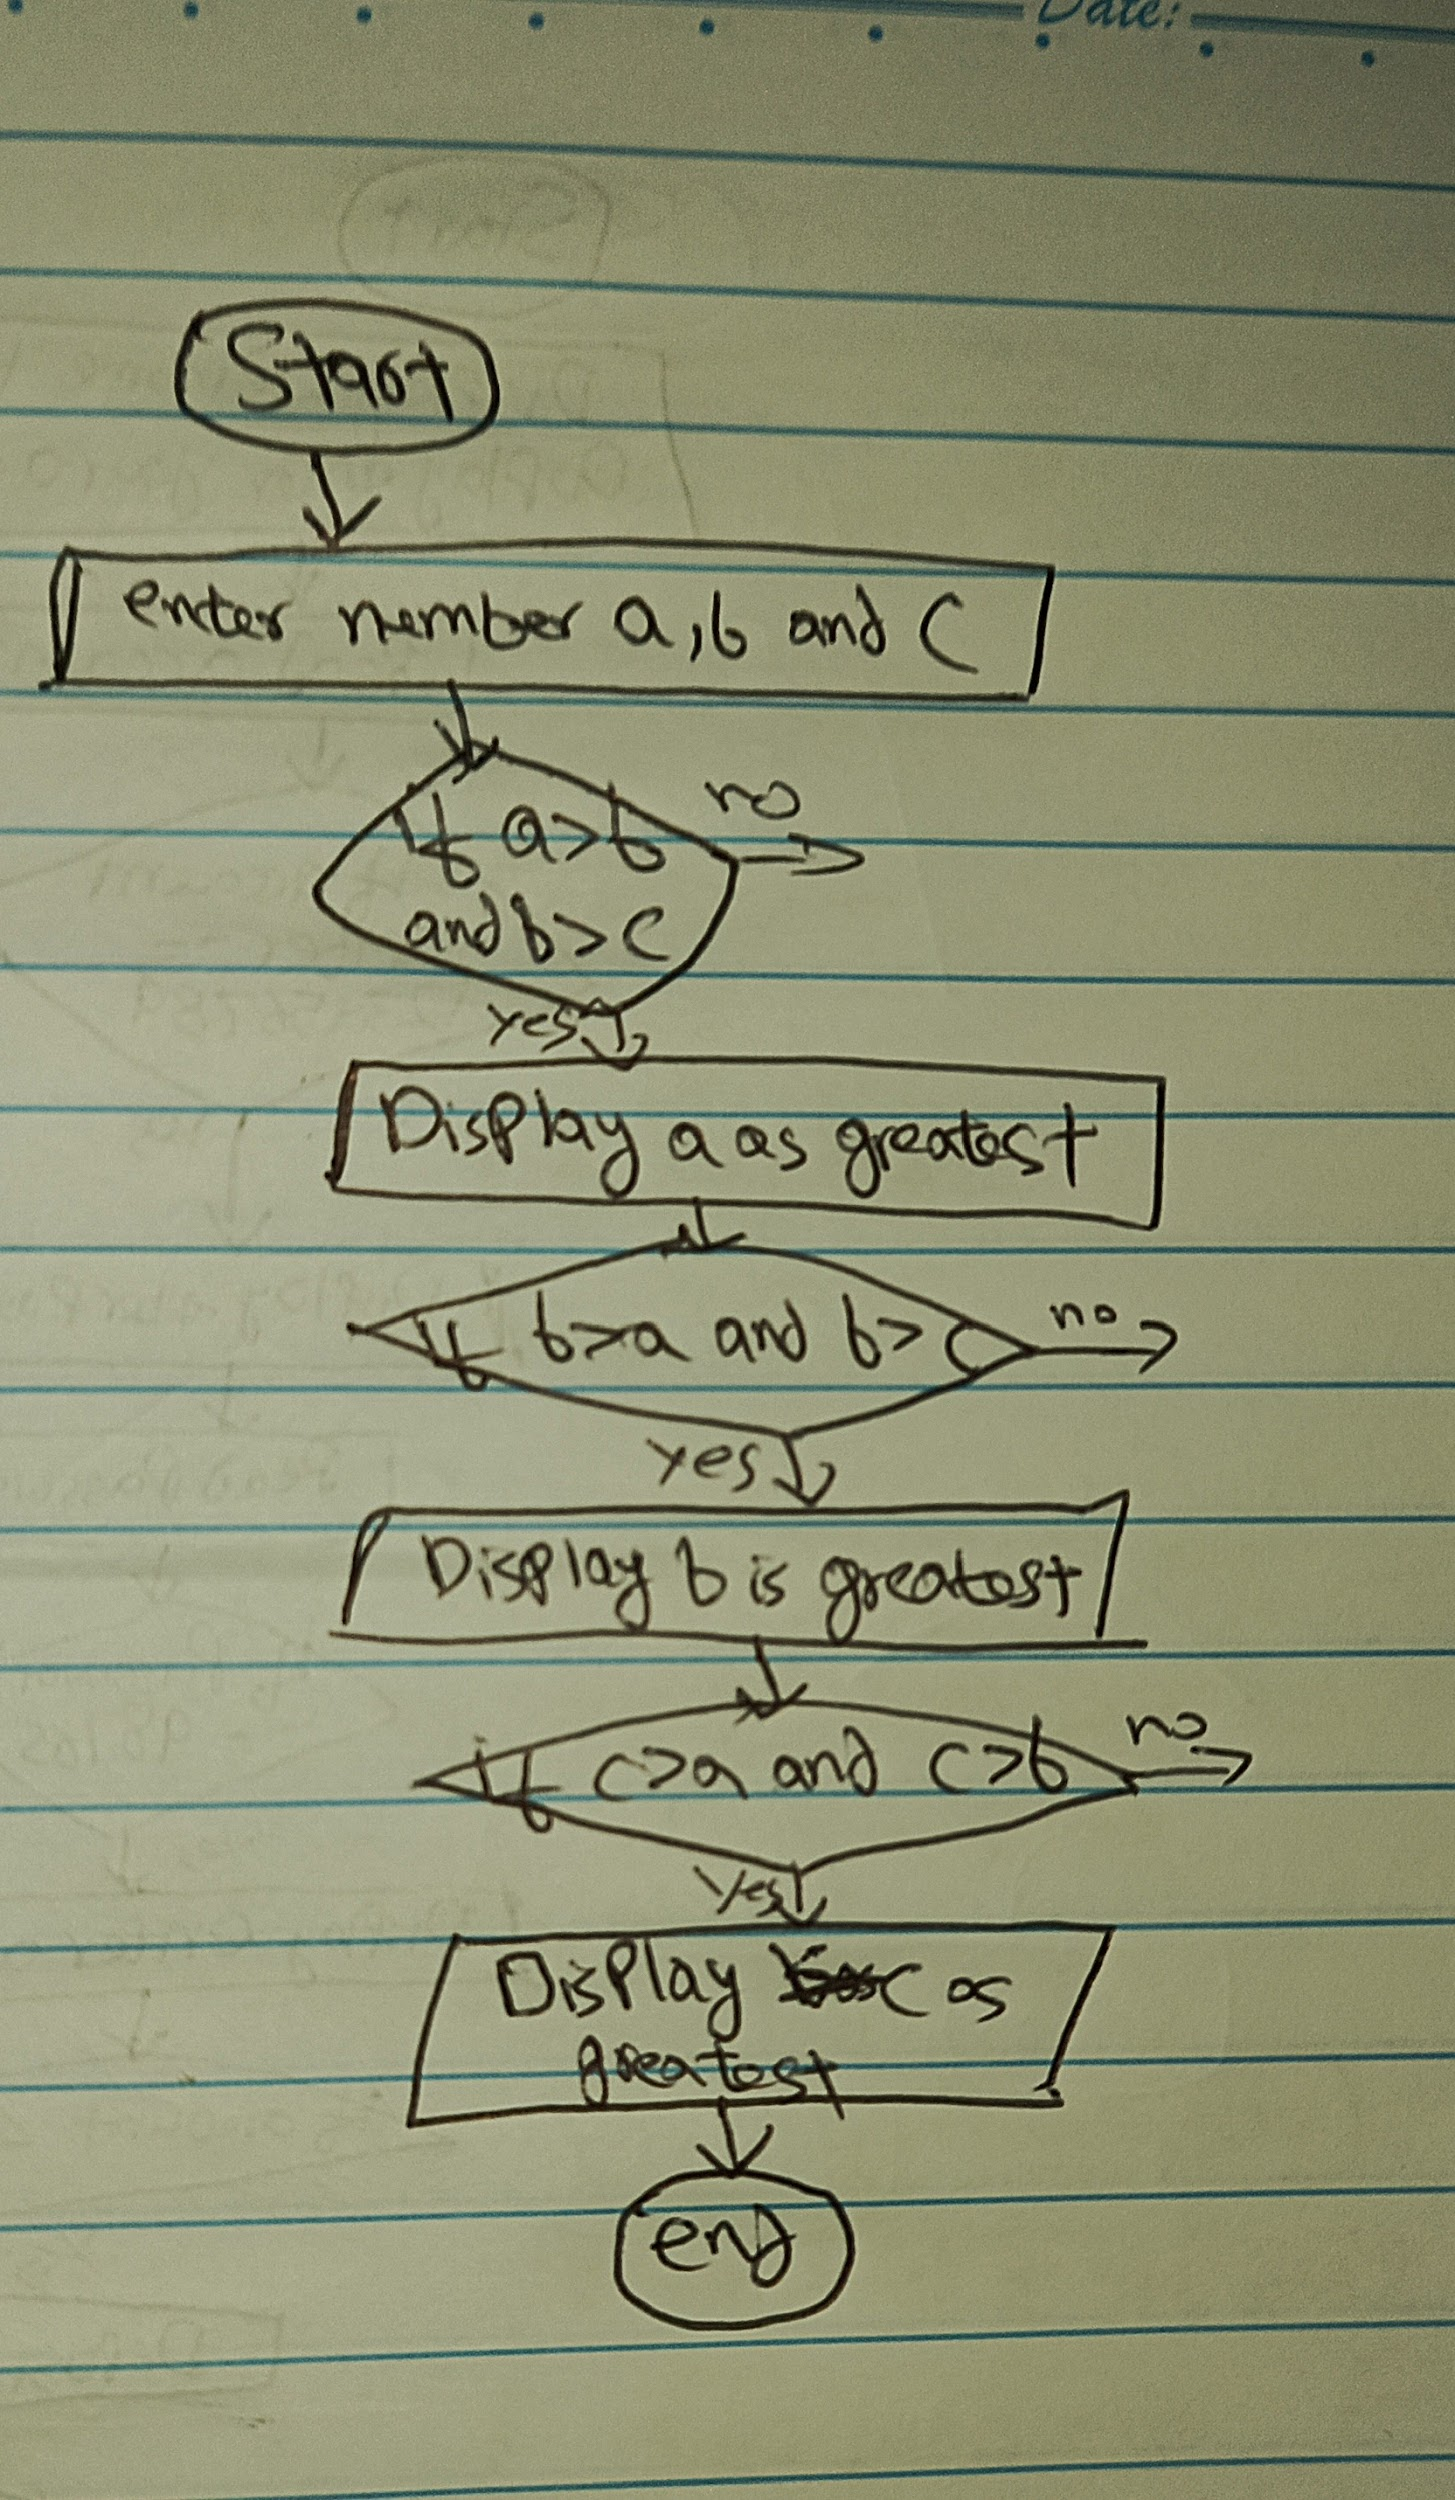 Date:
Start
enter number a, b and c
no
If a>b
and b>c
yes
Display a as greatest
no
If b>a and b>c
yes
Display b is greatest
no
if c>a and c>b
Yes
Display c as
greatest
end